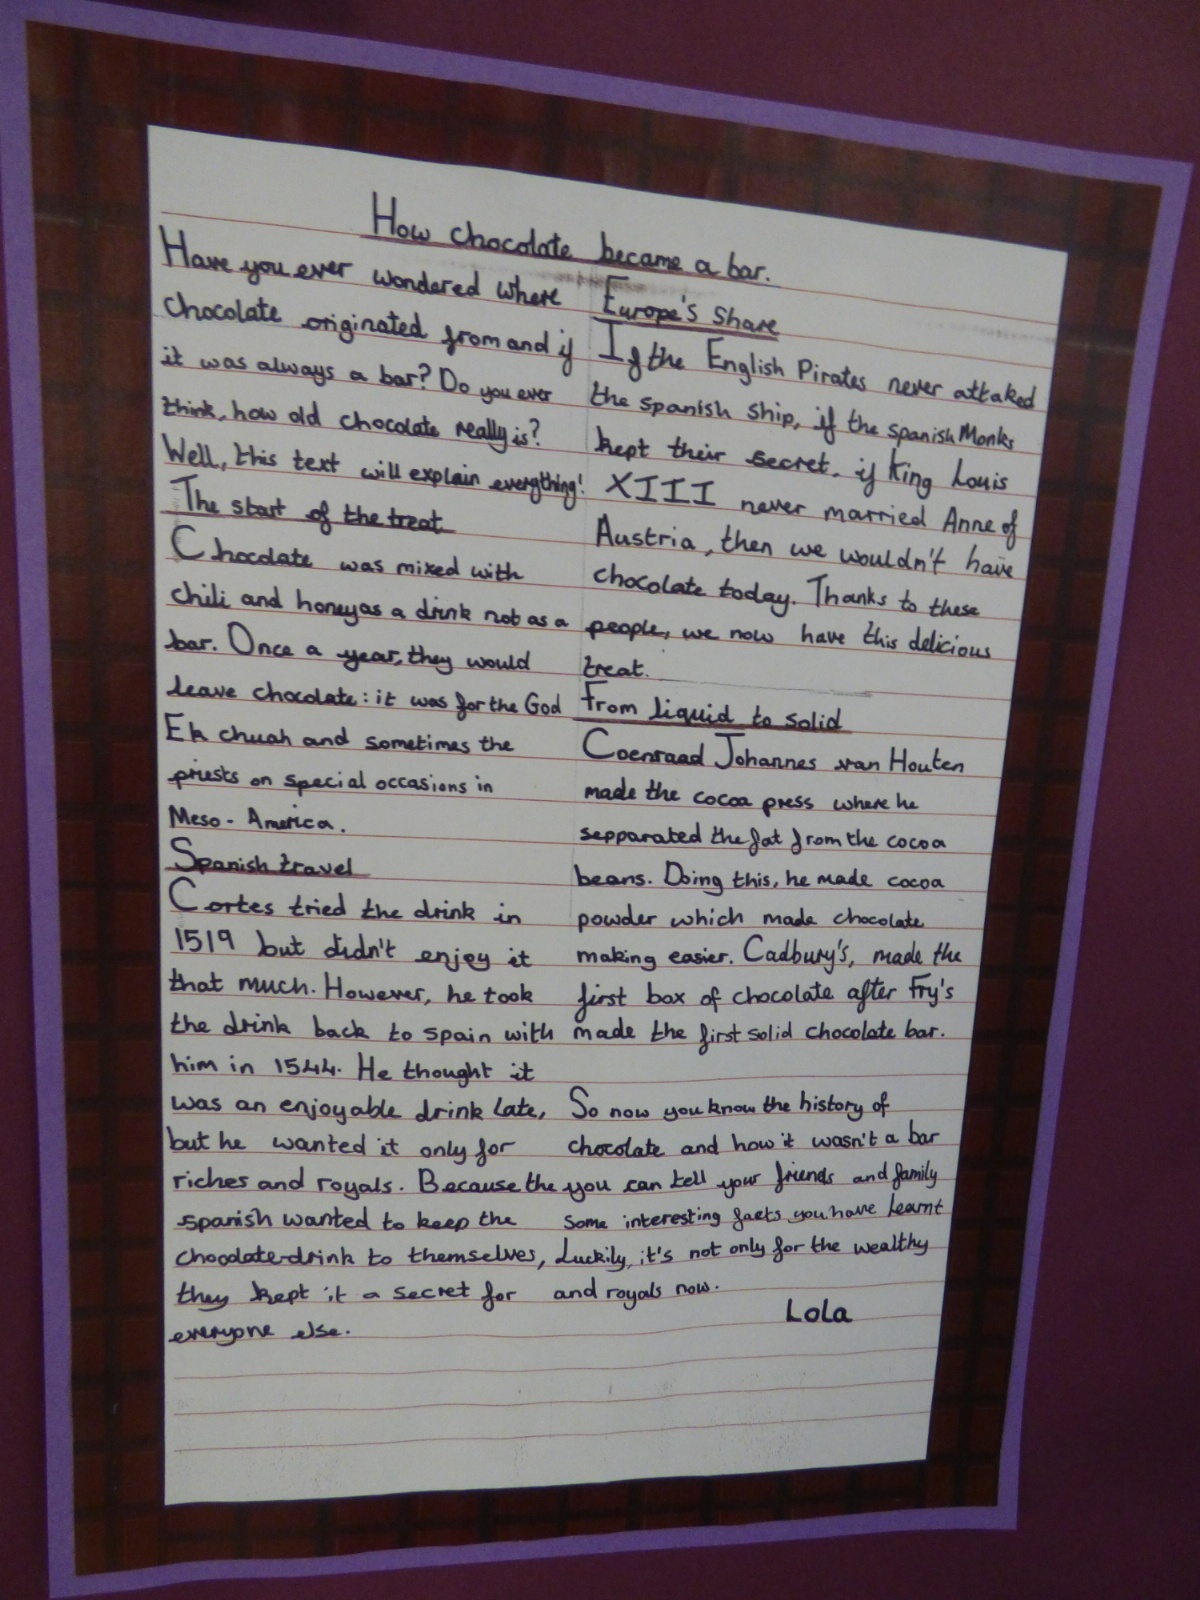 How chocolate became a bar.
Have you ever wondered where
chocolate originated from and if
it was always a bar? Do you ever
think, how old chocolate really is?
Well, this text will explain everything!
The start of the treat
Chocolate was mixed with
chili and honey as a drink not as a
bar. Once a year, they would
leave chocolate: it was for the God
Ek chuah and sometimes the
priests on special occasions in
Meso-America.
Spanish travel
Cortes tried the drink in
1519 but didn't enjoy it
that much. However, he took
the drink back to spain with
him in 1544. He thought it
was an enjoyable drink late,
but he wanted it only for
riches and royals. Because the
spanish wanted to keep the
chocolate drink to themselves,
they kept it a secret for
everyone else.
Europe's share
If the English Pirates never attaked
the spanish ship, if the spanish Monks
kept their secret, if King Louis
XIII never married Anne of
Austria, then we wouldn't have
chocolate today. Thanks to these
people, we now have this delicious
treat.
From liquid to solid
Coenraad Johannes van Houten
made the cocoa press where he
sepparated the fat from the cocoa
beans. Doing this, he made cocoa
powder which made chocolate
making easier. Cadbury's, made the
first box of chocolate after Fry's
made the first solid chocolate bar.
So now you know the history of
chocolate and how it wasn't a bar
you can tell your friends and family
some interesting facts you have learnt
Luckily, it's not only for the wealthy
and royals now.
Lola